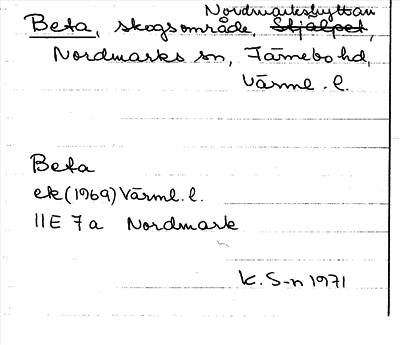 Nordmarkshyttan
Beta, skogsområde, Stjälpet,
Nordmarks sn, Färnebo hd,
Värml. l.
Beta
ek (1969) Värml. l.
11E 7a Nordmark
K. S-n 1971